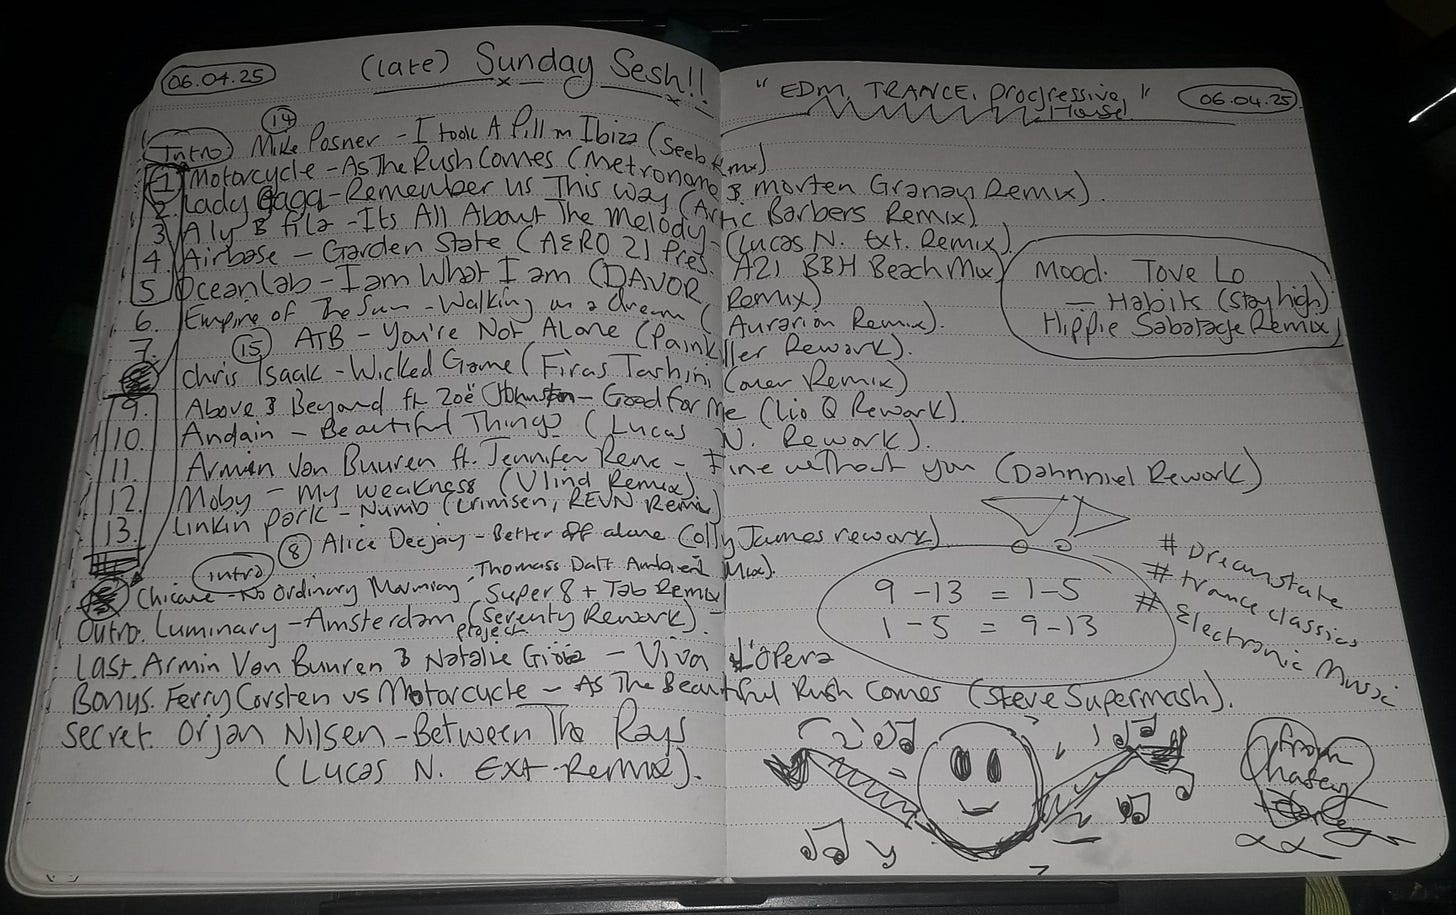 06.04.25
(late) Sunday Sesh!!
"EDM, TRANCE, Progressive, House"
06.04.25
14
Intro Mike Posner - I took A Pill in Ibiza (Seeb Rmx)
1 Motorcycle - As The Rush Comes (Metronome & Morten Granau Remix).
2. Lady Gaga - Remember Us This Way (Artic Barbers Remix)
3 Aly & fila - Its All About The Melody - (Lucas N. Ext. Remix)
4. Airbase - Garden State (AERO 21 Pres. A21 BBH Beach Mix)
5 Oceanlab - I am What I am (DAVOR Remix)
6. Empire of The Sun - Walking on a dream (Aurarion Remix).
7. 15 ATB - You're Not Alone (Painkiller Rework).
Chris Isaak - Wicked Game (Firas Tashini Cover Remix)
9. Above & Beyond ft. Zoë Johnston - Good for Me (Lio Q Rework).
10. Andain - Beautiful Things (Lucas N. Rework).
11. Armin Van Buuren ft. Jennifer Rene - Fine without you (Dahnniel Rework)
12. Moby - My weakness (Vlind Remix)
13. Linkin park - Numb (Crimsen, REVN Remix)
8 Alice Deejay - Better off alone (Olly James rework)
Intro
Chicane - No Ordinary Morning - Thomass Datt Ambient Mix).
Super 8 + Tab Remix
Outro. Luminary - Amsterdam (Serenity Rework).
project
Last. Armin Van Buuren & Natalie Gioia - Viva L'Opera
Bonus. Ferry Corsten vs Motorcycle - As The Beautiful Rush Comes (Steve Supermash).
Secret. Orjan Nilsen - Between The Rays
(Lucas N. Ext. Remix).
Mood. Tove Lo
- Habits (Stay high)
Hippie Sabotage Remix
9 - 13 = 1 - 5
1 - 5 = 9 - 13
# Dreamstate
# trance classics
# Electronic Music
from